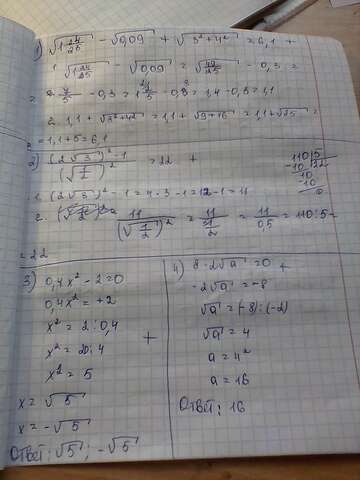 1) √(1 24/25) - √0,09 + √(3² + 4²) = 6,1 +
1. √(1 24/25) - √0,09 = √(49/25) - 0,3 =
= 7/5 - 0,3 = 1 2/5 - 0,3 = 1,4 - 0,3 = 1,1
2. 1,1 + √(3² + 4²) = 1,1 + √(9 + 16) = 1,1 + √25 =
= 1,1 + 5 = 6,1
2) ((2√3)² - 1) / (√(1/2))² = 22 +
1. (2√3)² - 1 = 4 · 3 - 1 = 12 - 1 = 11
2. 11/(√(1/2))² = 11/(1/2) = 11/0,5 = 110 : 5 =
= 22
110 | 5
-10 | 22
10
-10
0
3) 0,4x² - 2 = 0
0,4x² = +2
x² = 2 : 0,4
x² = 20 : 4
x² = 5
x = √5
x = -√5
Ответ: √5; -√5
+
4) 8 - 2√a = 0 +
-2√a = -8
√a = (-8) : (-2)
√a = 4
a = 4²
a = 16
Ответ: 16